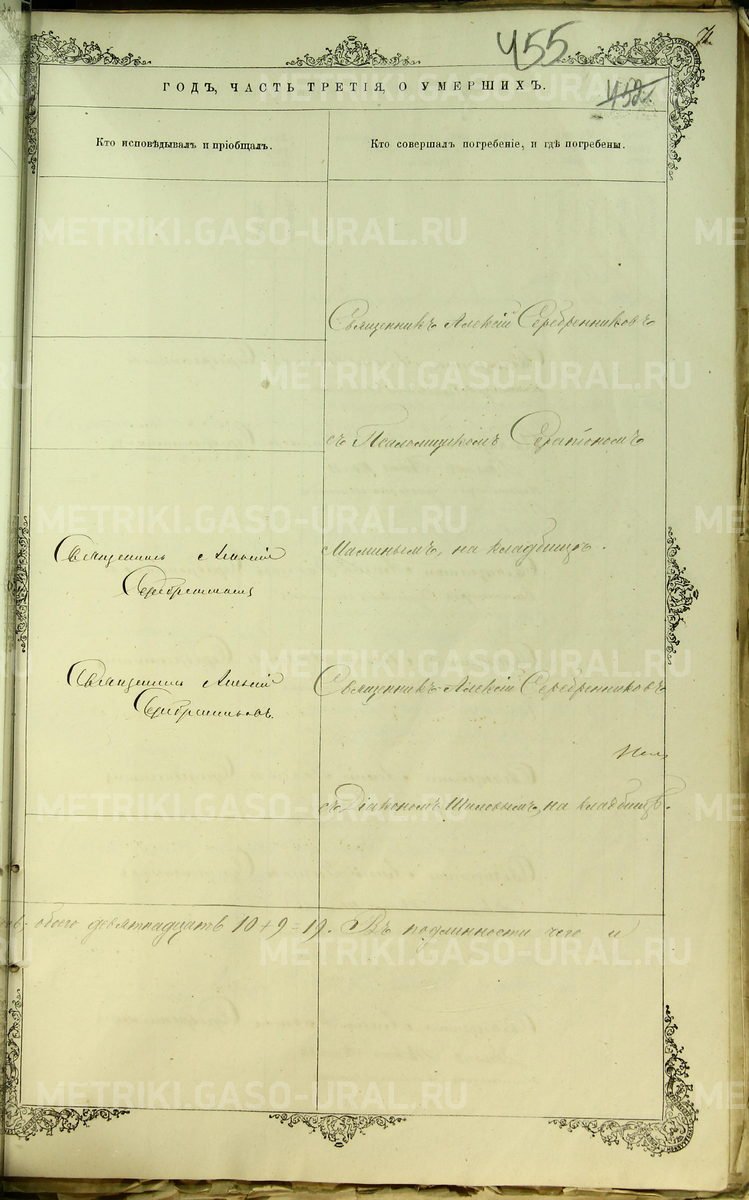 455
ГОДЪ, ЧАСТЬ ТРЕТІЯ, О УМЕРШИХЪ.
Кто исповѣдывалъ и пріобщалъ.
Кто совершалъ погребеніе, и гдѣ погребены.
METRIKI.GASO-URAL.RU
Священникъ Алексій Серебренниковъ
съ Псаломщикомъ Серапіономъ
Малинымъ, на кладбищѣ.
Священникъ Алексій
Серебренниковъ
Священникъ Алексій
Серебренниковъ.
Священникъ Алексій Серебренниковъ
съ Діакономъ Шиловымъ, на кладбищѣ.
обоего девятнадцать 10 + 9 = 19. Въ подлинности чего и